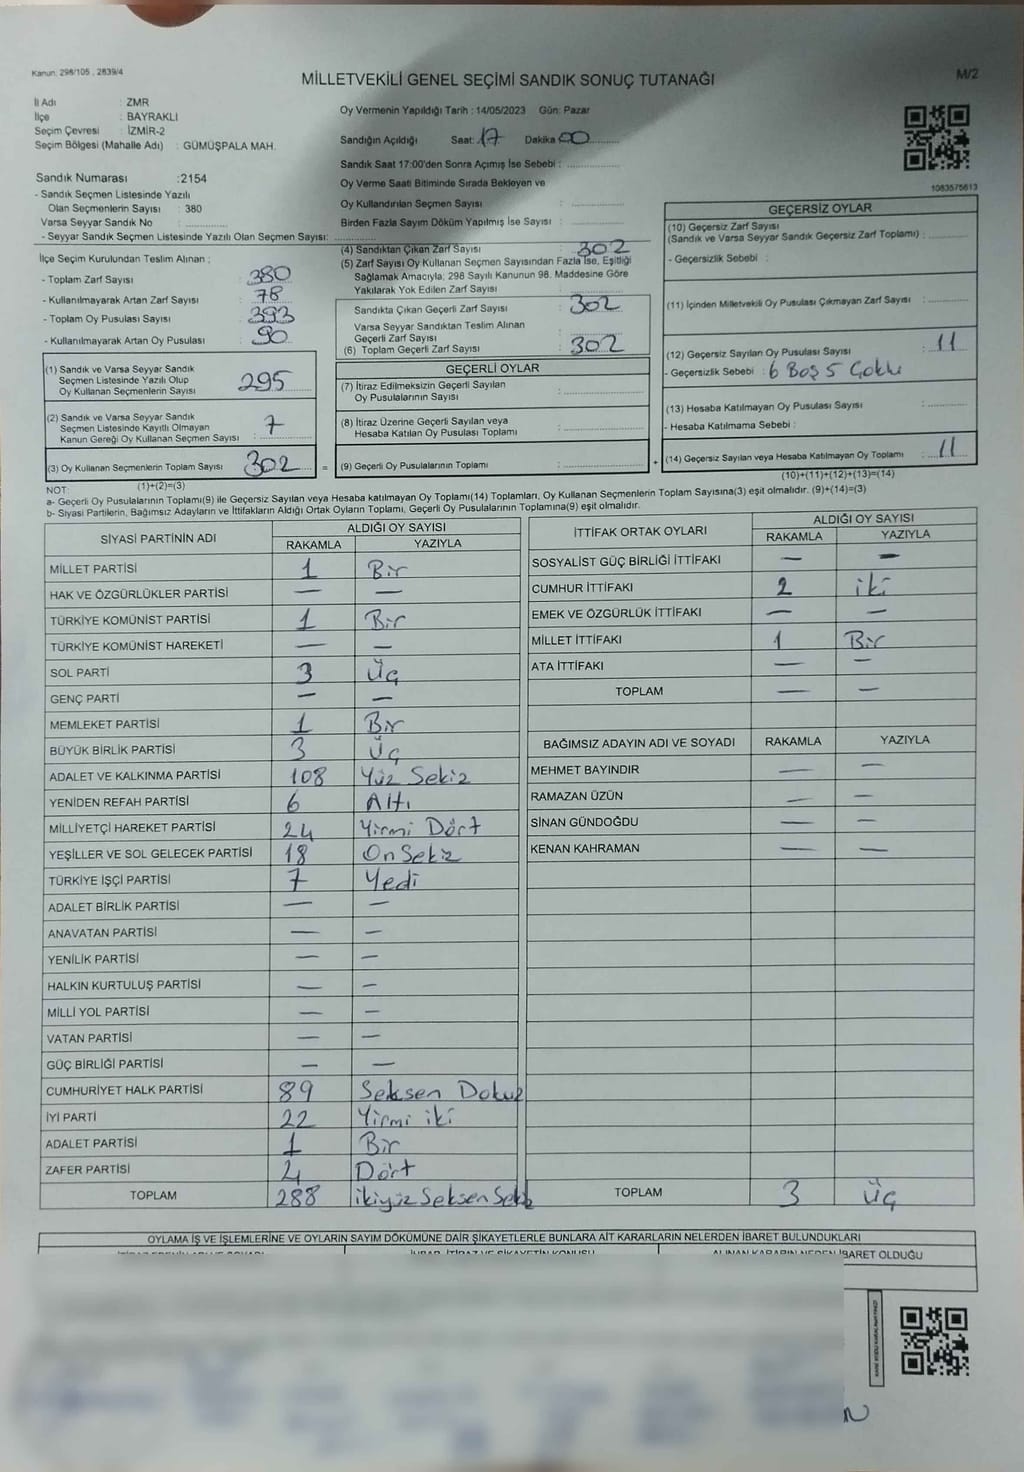 Kanun: 298/105 , 2839/4
MİLLETVEKİLİ GENEL SEÇİMİ SANDIK SONUÇ TUTANAĞI
M/2
İl Adı : ZMR
İlçe : BAYRAKLI
Seçim Çevresi : İZMİR-2
Seçim Bölgesi (Mahalle Adı) : GÜMÜŞPALA MAH.
Oy Vermenin Yapıldığı Tarih : 14/05/2023 Gün: Pazar
Sandığın Açıldığı Saat: 17 Dakika 00
Sandık Saat 17:00'den Sonra Açımış İse Sebebi :
Oy Verme Saati Bitiminde Sırada Bekleyen ve
Oy Kullandırılan Seçmen Sayısı :
Birden Fazla Sayım Döküm Yapılmış İse Sayısı :
1083575613
Sandık Numarası :2154
- Sandık Seçmen Listesinde Yazılı
Olan Seçmenlerin Sayısı : 380
Varsa Seyyar Sandık No :
- Seyyar Sandık Seçmen Listesinde Yazılı Olan Seçmen Sayısı:
İlçe Seçim Kurulundan Teslim Alınan ;
- Toplam Zarf Sayısı : 380
- Kullanılmayarak Artan Zarf Sayısı : 78
- Toplam Oy Pusulası Sayısı : 393
- Kullanılmayarak Artan Oy Pusulası : 90
(4) Sandıktan Çıkan Zarf Sayısı : 302
(5) Zarf Sayısı Oy Kullanan Seçmen Sayısından Fazla İse, Eşitliği
Sağlamak Amacıyla; 298 Sayılı Kanunun 98. Maddesine Göre
Yakılarak Yok Edilen Zarf Sayısı :
Sandıkta Çıkan Geçerli Zarf Sayısı : 302
Varsa Seyyar Sandıktan Teslim Alınan
Geçerli Zarf Sayısı :
(6) Toplam Geçerli Zarf Sayısı : 302
(1) Sandık ve Varsa Seyyar Sandık
Seçmen Listesinde Yazılı Olup
Oy Kullanan Seçmenlerin Sayısı : 295
(2) Sandık ve Varsa Seyyar Sandık
Seçmen Listesinde Kayıtlı Olmayan
Kanun Gereği Oy Kullanan Seçmen Sayısı : 7
(3) Oy Kullanan Seçmenlerin Toplam Sayısı : 302 =
(1)+(2)=(3)
GEÇERLİ OYLAR
(7) İtiraz Edilmeksizin Geçerli Sayılan
Oy Pusulalarının Sayısı :
(8) İtiraz Üzerine Geçerli Sayılan veya
Hesaba Katılan Oy Pusulası Toplamı :
(9) Geçerli Oy Pusulalarının Toplamı : +
GEÇERSİZ OYLAR
(10) Geçersiz Zarf Sayısı
(Sandık ve Varsa Seyyar Sandık Geçersiz Zarf Toplamı) :
- Geçersizlik Sebebi :
(11) İçinden Milletvekili Oy Pusulası Çıkmayan Zarf Sayısı :
(12) Geçersiz Sayılan Oy Pusulası Sayısı : 11
- Geçersizlik Sebebi : 6 Boş 5 Çoklu
(13) Hesaba Katılmayan Oy Pusulası Sayısı :
- Hesaba Katılmama Sebebi :
(14) Geçersiz Sayılan veya Hesaba Katılmayan Oy Toplamı : 11
(10)+(11)+(12)+(13)=(14)
NOT:
a- Geçerli Oy Pusulalarının Toplamı(9) ile Geçersiz Sayılan veya Hesaba katılmayan Oy Toplamı(14) Toplamları, Oy Kullanan Seçmenlerin Toplam Sayısına(3) eşit olmalıdır. (9)+(14)=(3)
b- Siyasi Partilerin, Bağımsız Adayların ve İttifakların Aldığı Ortak Oyların Toplamı, Geçerli Oy Pusulalarının Toplamına(9) eşit olmalıdır.
SİYASİ PARTİNİN ADI ALDIĞI OY SAYISI
RAKAMLA YAZIYLA
MİLLET PARTİSİ 1 Bir
HAK VE ÖZGÜRLÜKLER PARTİSİ — —
TÜRKİYE KOMÜNİST PARTİSİ 1 Bir
TÜRKİYE KOMÜNİST HAREKETİ — —
SOL PARTİ 3 Üç
GENÇ PARTİ — —
MEMLEKET PARTİSİ 1 Bir
BÜYÜK BİRLİK PARTİSİ 3 Üç
ADALET VE KALKINMA PARTİSİ 108 Yüz Sekiz
YENİDEN REFAH PARTİSİ 6 Altı
MİLLİYETÇİ HAREKET PARTİSİ 24 Yirmi Dört
YEŞİLLER VE SOL GELECEK PARTİSİ 18 On Sekiz
TÜRKİYE İŞÇİ PARTİSİ 7 Yedi
ADALET BİRLİK PARTİSİ — —
ANAVATAN PARTİSİ — —
YENİLİK PARTİSİ — —
HALKIN KURTULUŞ PARTİSİ — —
MİLLİ YOL PARTİSİ — —
VATAN PARTİSİ — —
GÜÇ BİRLİĞİ PARTİSİ — —
CUMHURİYET HALK PARTİSİ 89 Seksen Dokuz
İYİ PARTİ 22 Yirmi iki
ADALET PARTİSİ 1 Bir
ZAFER PARTİSİ 4 Dört
TOPLAM 288 ikiyüz Seksen Sekiz
İTTİFAK ORTAK OYLARI ALDIĞI OY SAYISI
RAKAMLA YAZIYLA
SOSYALİST GÜÇ BİRLİĞİ İTTİFAKI — —
CUMHUR İTTİFAKI 2 iki
EMEK VE ÖZGÜRLÜK İTTİFAKI — —
MİLLET İTTİFAKI 1 Bir
ATA İTTİFAKI — —
TOPLAM — —
BAĞIMSIZ ADAYIN ADI VE SOYADI RAKAMLA YAZIYLA
MEHMET BAYINDIR — —
RAMAZAN ÜZÜN — —
SİNAN GÜNDOĞDU — —
KENAN KAHRAMAN — —
TOPLAM 3 Üç
OYLAMA İŞ VE İŞLEMLERİNE VE OYLARIN SAYIM DÖKÜMÜNE DAİR ŞİKAYETLERLE BUNLARA AİT KARARLARIN NELERDEN İBARET BULUNDUKLARI
İHBAR, İTİRAZ VE ŞİKAYETİN KONUSU
ALINAN KARARIN NEDEN İBARET OLDUĞU